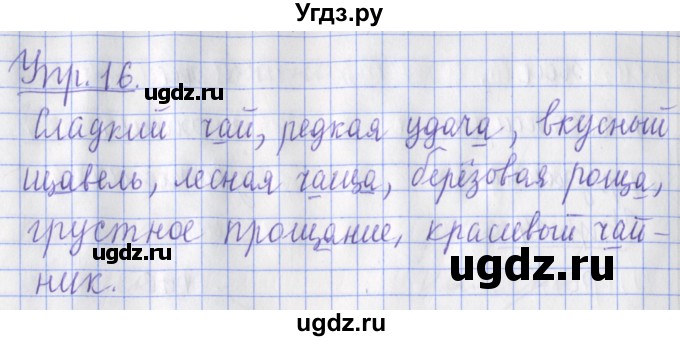 Угдз.ру
Упр. 16.
ugdz.ru
ugdz.ru
Сладкий чай, редкая удача, вкусный
щавель, лесная чаща, берёзовая роща,
ugdz.ru
грустное прощание, красивый чай-
ugdz.ru
ник.
ugdz.ru
ugdz.ru